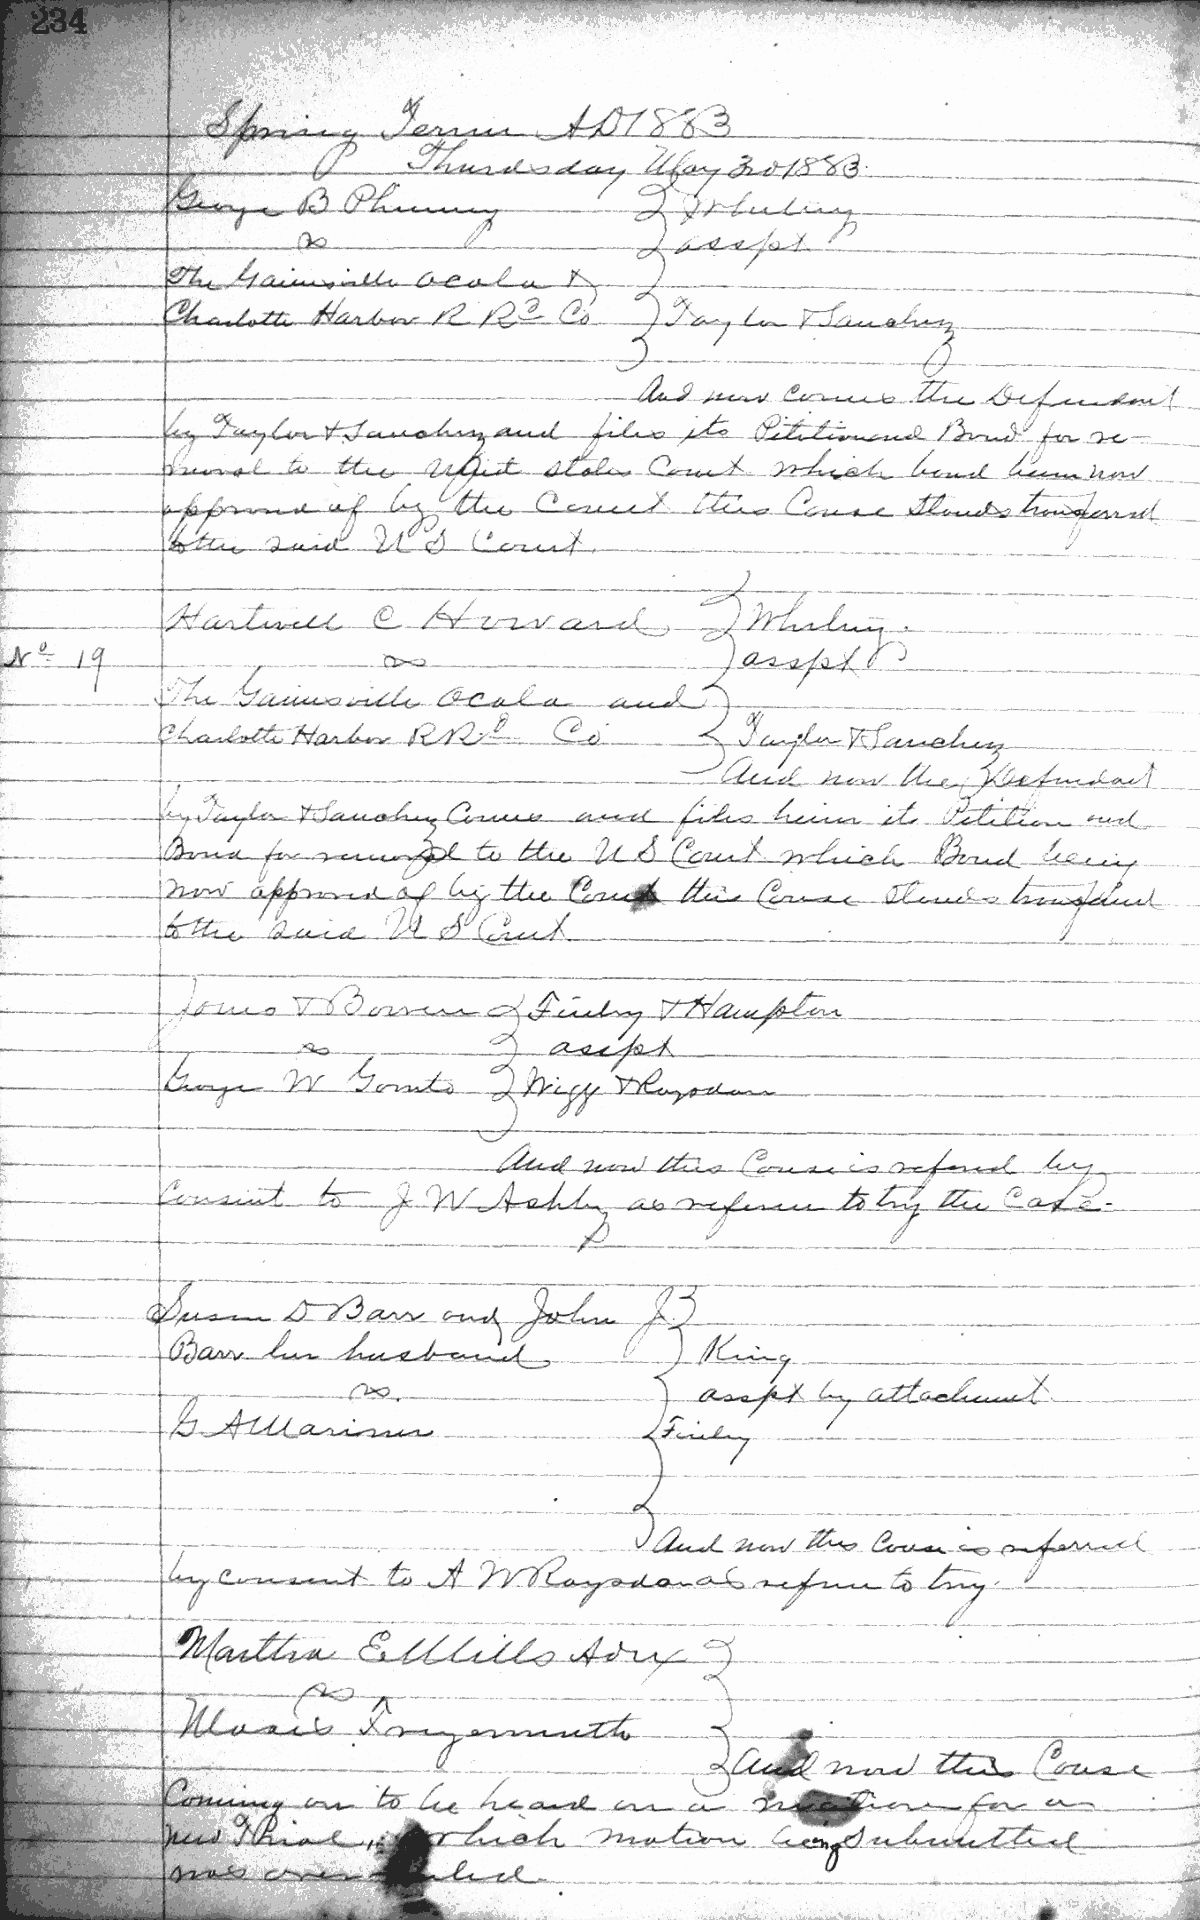 234
Spring Term AD 1883
Thursday May 3rd 1883.
George B Phinney } Whiting
vs } asspt
The Gainsville Ocala &
Charlotte Harbor R Rd Co } Taylor & Sanchez
And now comes the Defendant
by Taylor & Sanchez and files its Petition and Bond for re-
moval to the Unit states Court which bond being now
approved of by the Court this Cause Stands transferred
to the said U S Court.
Hartwell C Howard } Whiting.
No 19 vs } asspt
The Gainsville Ocala and
Charlotte Harbor R Rd Co } Taylor & Sanchez
And now the Defendant
by Taylor & Sanchez Comes and files herein its Petition and
Bond for removal to the U S Court which Bond being
now approved of by the Court this Cause Stands transferred
to the said U S Court
Jones & Bowen } Finley & Hampton
vs } asspt
George W Gornto } Wigg & Raysdon
And now this Cause is refered by
Consent to J W Ashby as referee to try the Case-
Susan D Barr and John J.
Barr her husband } King
vs. } asspt by attachment
G A Mariner } Finley
And now this Cause is referred
by consent to A W Raysdon as referee to try.
Martha E Mills Adrx
vs
Moses Freyermuth
And now this Cause
Coming on to be heard on a motion for a
new Trial, which motion being submitted
was over ruled.